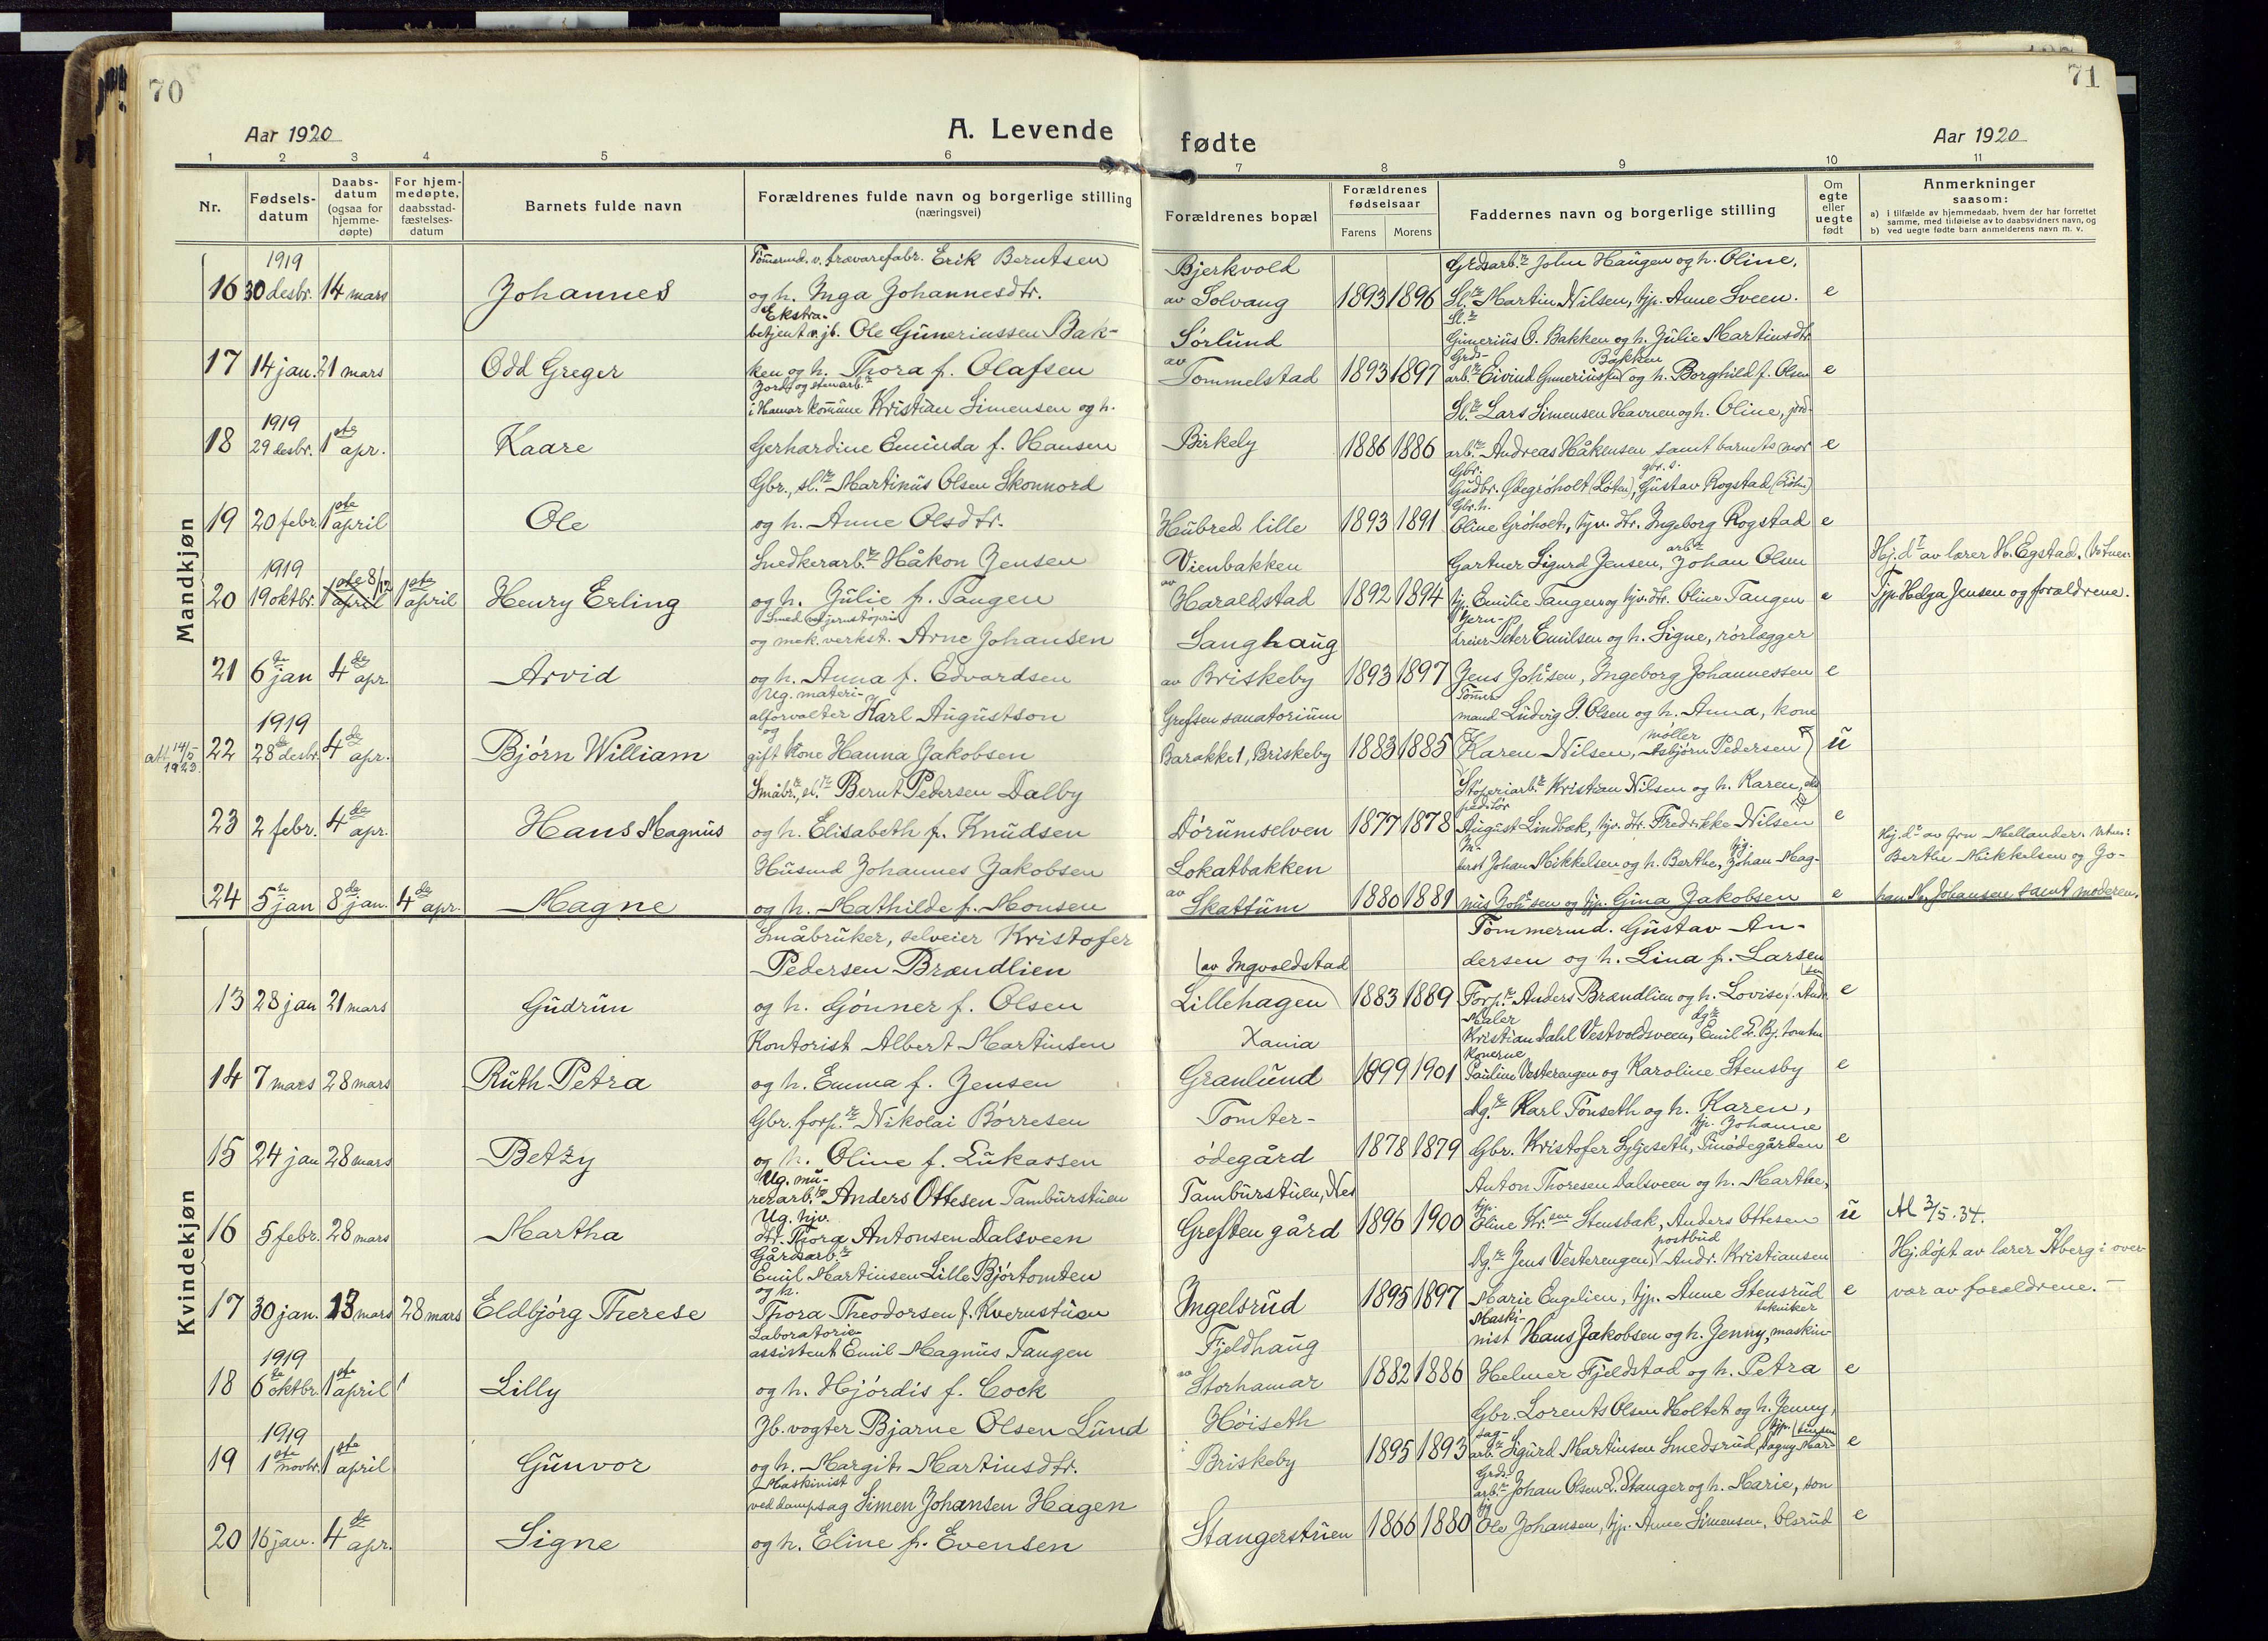 70
71
Aar 1920
A. Levende
fødte
Aar 1920
1 2 3 4 5 6 7 8 9 10 11
Nr.
Fødsels-
datum
Daabs-
datum
(ogsaa for
hjemme-
døpte)
For hjem-
medøpte,
daabsstad-
fæstelses-
datum
Barnets fulde navn
Forældrenes fulde navn og borgerlige stilling
(næringsvei)
Forældrenes bopæl
Forældrenes
fødselsaar
Farens Morens
Faddernes navn og borgerlige stilling
Om
egte
eller
uegte
født
Anmerkninger
saasom:
a) i tilfælde av hjemmedaab, hvem der har forrettet
samme, med tilføielse av to daabsvidners navn, og
b) ved uegte fødte barn anmelderens navn m. v.
Mandkjøn
1919
16 30 desbr. 14 mars Johannes
Tømermd. v. trævarefabr. Erik Berntsen
og h. Inga Johannesdtr.
Bjerkvold
av Solvang 1893 1896
Grdsarb.r John Haugen og h. Oline,
Sl.r Martin Nilsen, tjp. Anne Sveen. e
17 14 jan. 21 mars Odd Greger
Ekstra-
betjent v. jb. Ole Guneriussen Bak-
ken og h. Thora f. Olafsen
Sørlund
av Tommelstad 1893 1897
Sl.r
Gunerius O. Bakken og h. Julie Martinsdtr
Grds- Bakken
arb.r Eivind Guneriussen og h. Borghild f. Olsen e
1919
18 29 desbr. 1ste apr. Kaare
Jord og stenarb.r
i Hamar kommune Kristian Simensen og h.
Gerhardine Eminda f. Hansen
Birkely 1886 1886
Sl.r Lars Simensen Havnen og h. Oline, jord-
arb.r Andreas Håkensen samt barnets mor e
19 20 febr. 1ste april Ole
Gbr., sl.r Martinus Olsen Skonnord
og h. Anne Olsdtr.
Hubred lille 1893 1891
Gbr. gbr. s.
Gudbr. Ødegróholt (Løten), Gustav Rogstad
Gbr. h.
Oline Gróholt, hjv. dtr. Ingeborg Rogstad e
1919
20 19 oktbr. 1ste april 8/12 1ste april Henry Erling
Snedkerarb.r Håkon Jensen
og h. Julie f. Tangen
Vienbakken
av Haraldstad 1892 1894
Gartner Sigurd Jensen, arb.r Johan Olsen
tjp. Emilie Tangen og hjv. dtr. Oline Tangen e
Hj. dt av lærer H. Egstad. Vitner
Tjp. Helga Jensen og forældrene.
21 6te jan 4de apr. Arvid
Smed ved jernstøperi
og mek. verkst. Arne Johansen
og h. Anna f. Edvardsen
Sanghaug
av Briskeby 1893 1897
Jern-
dreier Peter Emilsen og h. Signe, rørlægger
Jens Johsen, Ingeborg Johannessen e
att. 14/5 1923.
1919
22 28de desbr. 4de apr. Bjørn William
Ug. materi-
alforvalter Karl Augustson
og
gift kone Hanna Jakobsen
Grefsen sanatorium
Barakke 1, Briskeby 1883 1885
Tømer-
mand Ludvig J. Olsen og h. Anna, kone
Karen Nilsen, møller Asbjørn Pedersen u
23 2 febr. 4de apr. Hans Magnus
Småbr., sl.r Bernt Pedersen Dalby
og h. Elisabeth f. Knudsen
Dørumselven 1877 1878
Støperiarb.r Kristian Nilsen og h. Karen, eks-
peditør
August Lindbæk, hjv. dtr. Fredrikke Nilsen e
24 5te jan 8de jan. 4de apr. Magne
Husmd Johannes Jakobsen
og h. Mathilde f. Monsen
Lokatbakken
av Skattum 1880 1881
Johan Mikkelsen og h. Berthe, tjg. Johan Mag-
nus Johsen og tjp. Gina Jakobsen e
Hj. dt av fru Mellander. Vitner:
Berthe Mikkelsen og Jo-
han M. Johansen samt moderen.
Kvindekjøn
13 28 jan 21 mars Gudrun
Småbruker, selveier Kristofer
Pedersen Brændlien
og h. Gønner f. Olsen
(av Ingvoldstad
Lillehagen 1883 1889
Tømmermd. Gustav An-
dersen og h. Lina f. Larsen
Forp.r Anders Brændlien og h. Lovise f. Andr.sen e
14 7 mars 28 mars Ruth Petra
Kontorist Albert Martinsen
og h. Emma f. Jensen
Xania
Granlund 1899 1901
Maler dgr
Kristian Dahl Vestvoldsveen, Emil L. Bj. tomten
Konerne
Pauline Vesterengen og Karoline Stensby e
15 24 jan 28 mars Betzy
Gbr. forp.r Nikolai Børresen
og h. Oline f. Lukassen
Tomter-
ødegård 1878 1879
Dg.r Karl Tønseth og h. Karen,
tjp. Johanne
Gbr. Kristofer Syljeseth, Tuødegården e
16 5 febr. 28 mars Martha
Ug. mu-
rerarb.r Anders Ottesen Tamburstuen
Ug. hjv.
dtr. Thora Antonsen Dalsveen
Tamburstuen, Nes
Greften gård 1896 1900
Anton Thoresen Dalsveen og h. Marthe,
tjp.
Eline Kr.sen Stensbak, Anders Ottesen u
Al 3/5. 34.
17 30 jan. 13 mars 28 mars Eldbjørg Therese
Gårdsarb.r
Emil Martinsen Lille Bjørtomten
og h.
Thora Theodorsen f. Kvernstuen
Ingelsrud 1895 1897
Dg.r Jens Vesterengen, postbud Andr. Kristiansen
Marie Engelien, tjp. Anne Stensrud e
Hj. døpt av lærer Åberg i over
vær av forældrene.
1919
18 6te oktbr. 1ste april Lilly
Laboratorie-
assistent Emil Magnus Tangen
og h. Hjørdis f. Cock
Fjeldhaug
av Storhamar 1882 1886
Maski- tekniker
nist Hans Jakobsen og h. Jenny, maskin-
Helmer Fjeldstad og h. Petra e
1919
19 1ste novbr. 1ste april Gunvor
Jb. vogter Bjarne Olsen Lund
og h. Margit Martinsdtr.
Høiseth
i Briskeby 1895 1893
Gbr. Lorents Olsen Holtet og h. Jenny,
sag- tjp.
arb.r Sigurd Martinsen Smedsrud, Dagny Mar-tinsen e
20 16 jan. 4de apr. Signe
Maskinist
ved dampsag Simen Johansen Hagen
og h. Eline f. Evensen
Stangerstuen 1866 1880
Grds-
arb.r Johan Olsen L. Stanger og h. Marie, søn
tjg
Ole Johansen, tjp. Anne Simensen, Olsrud e